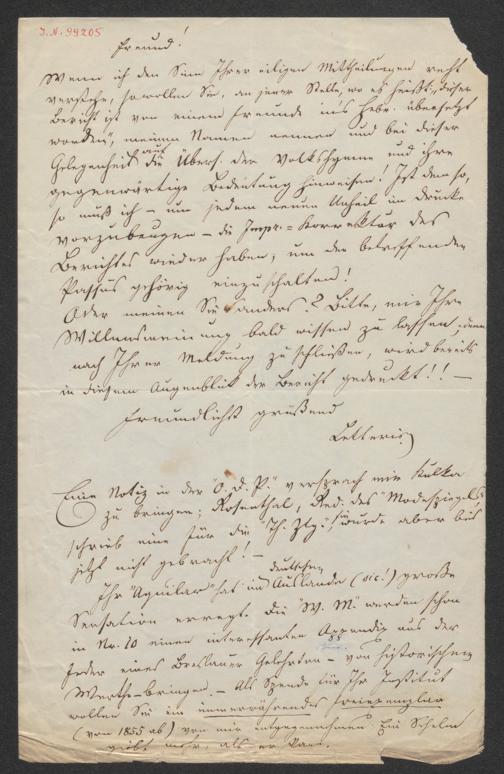 I.N. 99205
Freund!
Wenn ich den Sinn Ihrer eiligen Mittheilungen recht
verstehe, so wollen Sie, an jener Stelle, wo es heißt: „dieser
Bericht ist von einem Freunde ins Hebr. übersetzt
worden", meinen Namen nennen und bei dieser
Gelegenheit auf die Übers. der Volkshymne und ihre
gegenwärtige Bedeutung hinweisen! Ist dem so,
so muß ich – um jedem neuen Unheil im Drucke
vorzubeugen – die Impr.=Korrektur des
Berichtes wieder haben, um den betreffenden
Passus gehörig einzuschalten!
Oder meinen Sie's anders? Bitte, mir Ihre
Willensmeinung bald wissen zu lassen; denn
nach Ihrer Meldung zu schließen, wird bereits
in diesem Augenblick der Bericht gedruckt!! –
Freundlichst grüßend
Letteris
Eine Notiz in der "O. d. P." versprach mir Kulka
zu bringen; Rosenthal, Red. des "Modespiegels"
schrieb eine für die "Th. Ztg."; sie wurde aber bis
jetzt nicht gebracht! –
Ihr "Aguilar" hat im deutschen Auslande (sic!) große
Sensation erregt. Die "W. M." werden schon
in Nr. 10 einen interessanten Appendix aus der
Feder eines Breslauer Gelehrten – von historischem
Werthe – bringen. – Als Spende für Ihr Institut
wollen Sie ein immerwährendes Freiexemplar
(von 1855 ab) von mir entgegennehmen. Ein Schelm
gibt mehr, als er kann.